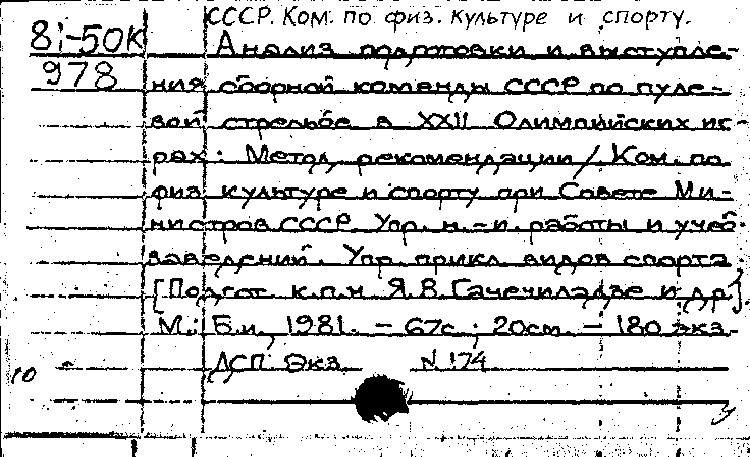 СССР. Ком. по физ. культуре и спорту.
8i-50К Анализ подготовки и выступле-
978 ния сборной команды СССР по пуле-
вой стрельбе в XXII Олимпийских иг-
рах: Метод. рекомендации / Ком. по
физ культуре и спорту при Совете Ми-
нистров СССР. Упр. н.-и. работы и учеб.
заведений. Упр. прикл. видов спорта.
[Подгот. к.п.н Я.В. Гачечиладзе и др].
М.: Б.и, 1981. - 67с.; 20см. - 180 экз.
ДСП. Экз. N 174
10